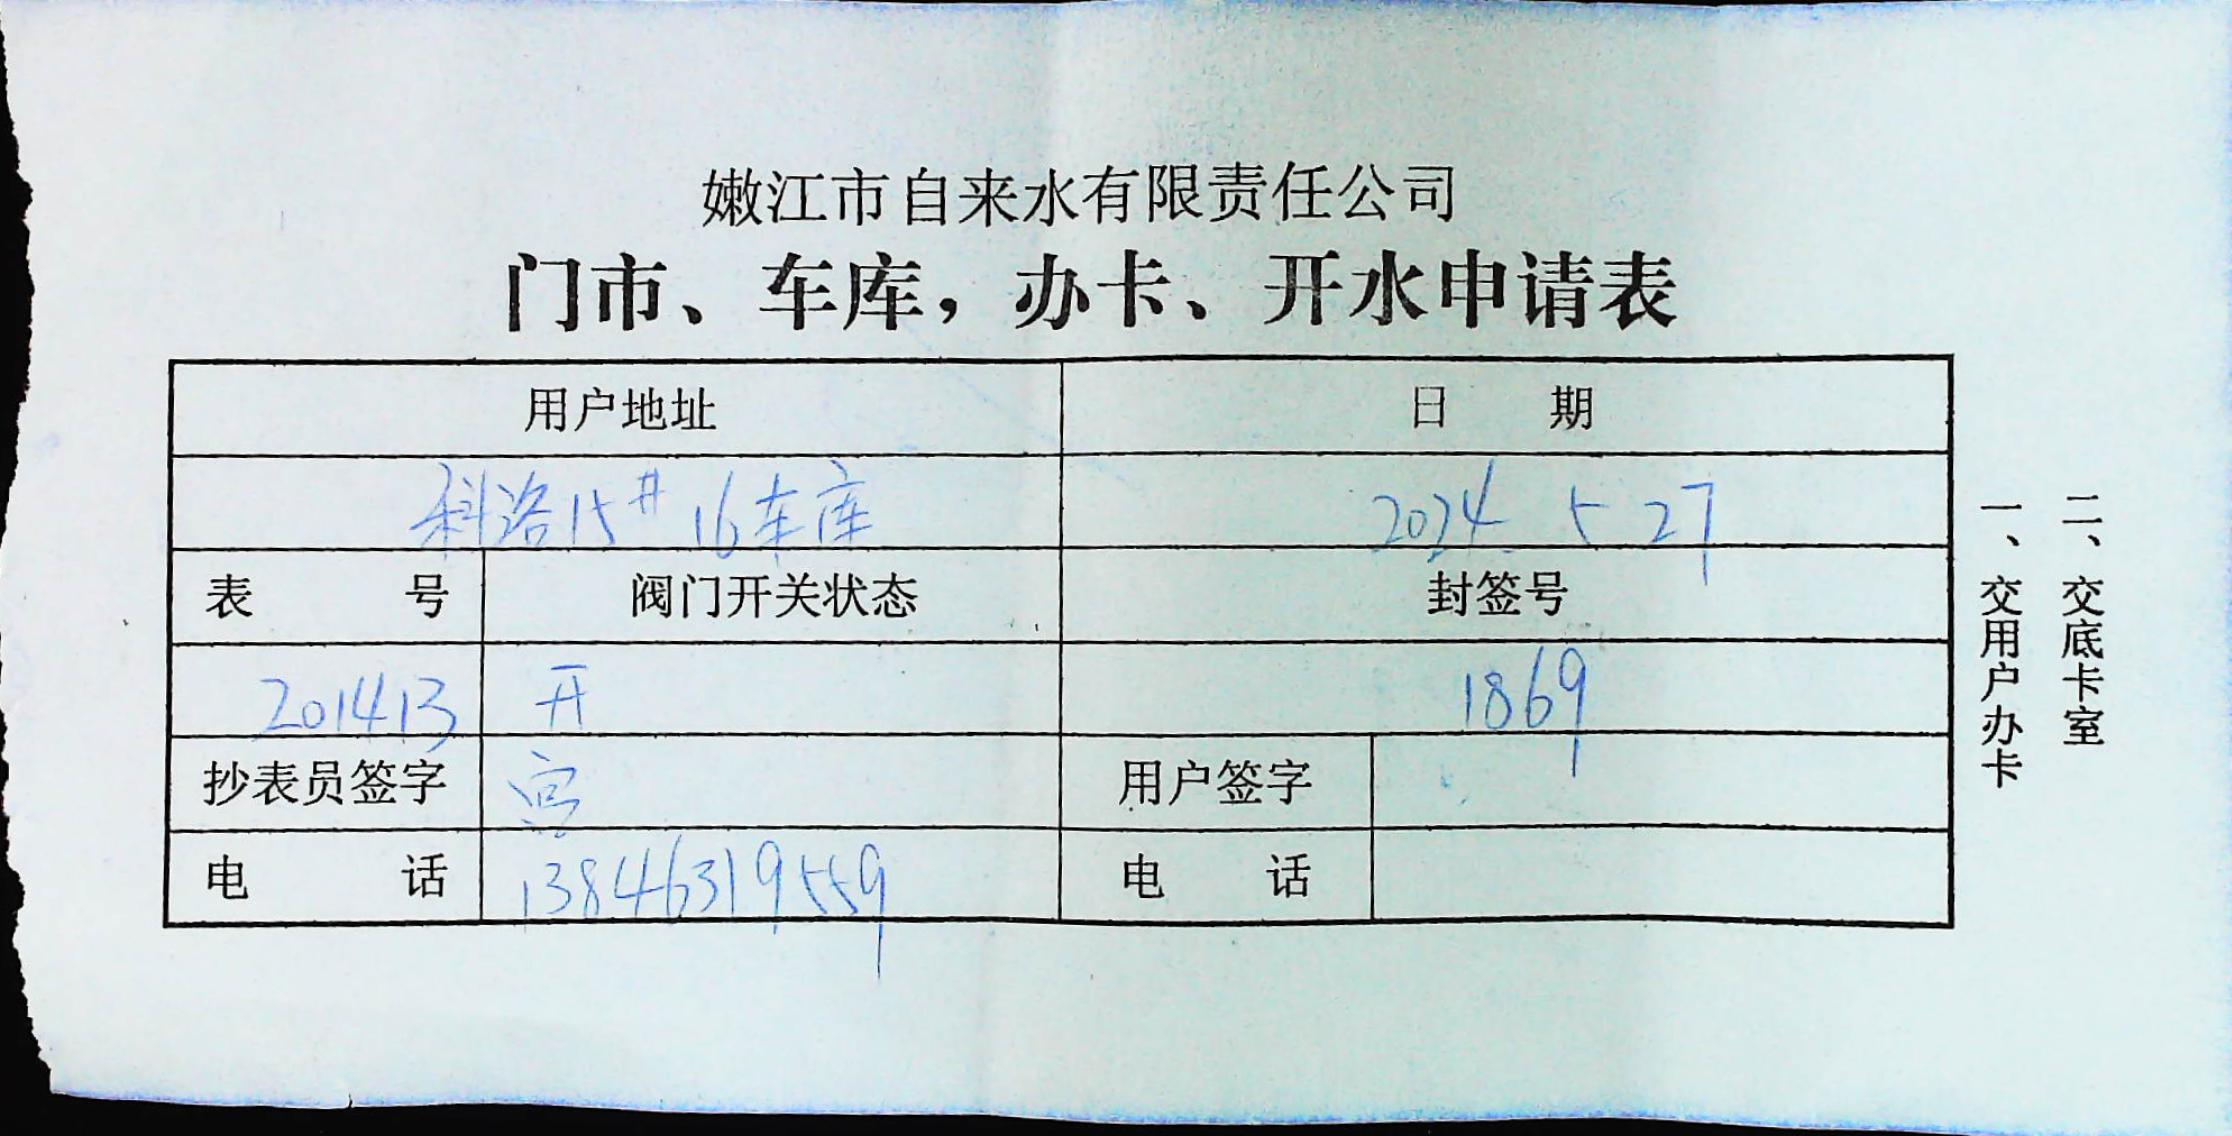 嫩江市自来水有限责任公司
门市、车库，办卡、开水申请表
用户地址 日期
科洛15# 16车库 2024 5 27
表号 阀门开关状态 封签号
201413 开 1869
抄表员签字 宫 用户签字
电话 13846319559 电话
一、交用户办卡
二、交底卡室